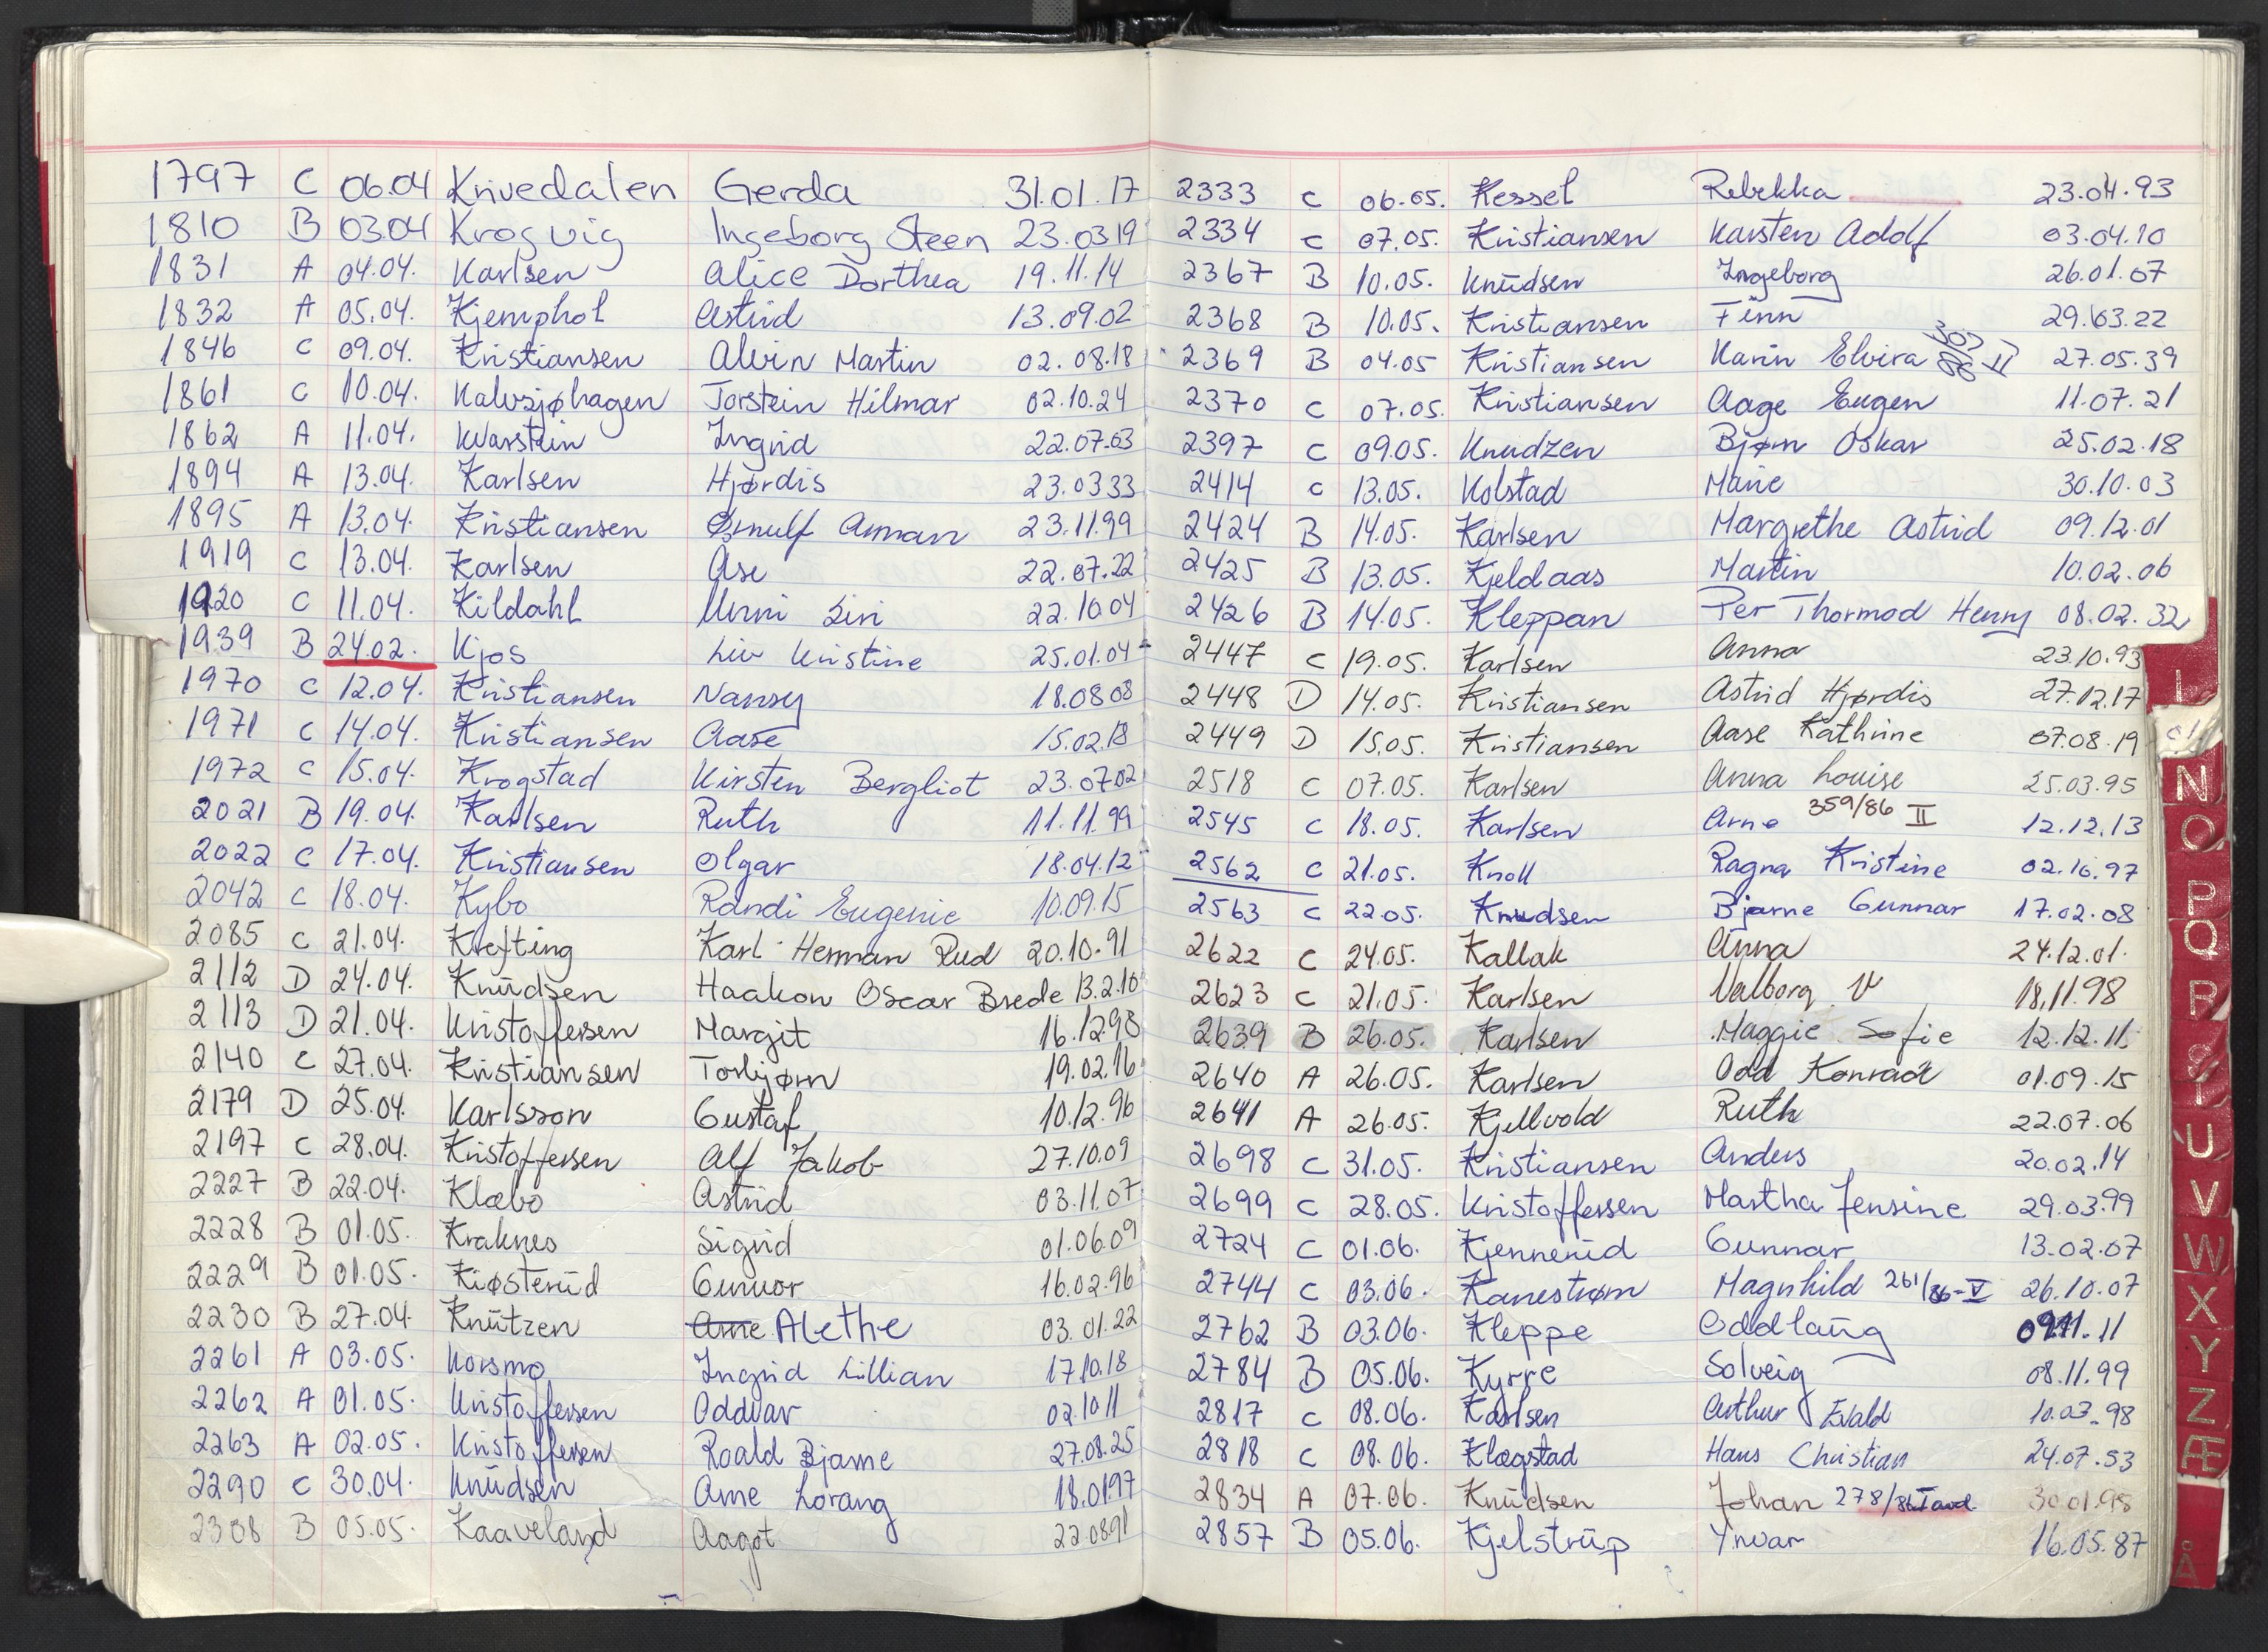 1797 C 06.04 Krivedalen Gerda 31.01.17
1810 B 03.04 Krogvig Ingeborg Steen 23.03.19
1831 A 04.04. Karlsen Alice Dorthea 19.11.14
1832 A 05.04. Kjemphol Astrid 13.09.02
1846 C 09.04. Kristiansen Alvin Martin 02.08.18
1861 C 10.04. Kalvsjøhagen Torstein Hilmar 02.10.24
1862 A 11.04. Kvarstein Ingrid 22.07.03
1894 A 13.04. Karlsen Hjørdis 23.03.33
1895 A 13.04. Kristiansen Ørnulf Annan 23.11.99
1919 C 13.04. Karlsen Åse 22.07.22
1920 C 11.04. Kildahl Unni Siri 22.10.04
1939 B 24.02. Kjos Liv Kristine 25.01.04
1970 C 12.04. Kristiansen Nansy 18.08.08
1971 C 14.04. Kristiansen Aase 15.02.18
1972 C 15.04. Krogstad Kirsten Bergliot 23.07.02
2021 B 19.04. Karlsen Ruth 11.11.99
2022 C 17.04. Kristiansen Olgar 18.04.12
2042 C 18.04. Kybo Randi Eugenie 10.09.15
2085 C 21.04. Krefting Karl Herman Rud 20.10.91
2112 D 24.04. Knudsen Haakon Oscar Brede 13.2.10
2113 D 21.04. Kristoffersen Margit 16.12.98
2140 C 27.04. Kristiansen Torbjørn 19.02.16
2179 D 25.04. Karlsson Gustaf 10.12.96
2197 C 28.04. Kristoffersen Alf Jakob 27.10.09
2227 B 22.04. Klæbo Astrid 03.11.07
2228 B 01.05. Kraknes Sigrid 01.06.09
2229 B 01.05. Kiøsterud Gunvor 16.02.96
2230 B 27.04. Knutzen Arne Alethe 03.01.22
2261 A 03.05. Korsmo Ingrid Lillian 17.10.18
2262 A 01.05. Kristoffersen Oddvar 02.10.11
2263 A 02.05. Kristoffersen Roald Bjarne 27.08.25
2290 C 30.04. Knudsen Arne Lorang 18.01.97
2308 B 05.05. Kaaveland Aagot 22.08.91
2333 C 06.05. Kessel Rebekka 23.04.93
2334 C 07.05. Kristiansen Karsten Adolf 03.04.10
2367 B 10.05. Knudsen Ingeborg 26.01.07
2368 B 10.05. Kristiansen Finn 29.03.22
2369 B 04.05 Kristiansen Karin Elvira II 27.05.39
2370 C 07.05. Kristiansen Aage Eugen 11.07.21
2397 C 09.05. Knudzen Bjørn Oskar 25.02.18
2414 C 13.05. Kolstad Marie 30.10.03
2424 B 14.05. Karlsen Margrethe Astrid 09.12.01
2425 B 13.05. Kjeldaas Martin 10.02.06
2426 B 14.05. Kleppan Per Thormod Henny 08.02.32
2447 C 19.05. Karlsen Anna 23.10.93
2448 D 14.05. Kristiansen Astrid Hjørdis 27.12.17
2449 D 15.05. Kristiansen Aase Kathrine 07.08.19
2518 C 07.05. Karlsen Anna Louise 25.03.95
2545 C 18.05. Karlsen Arne 359/86 II 12.12.13
2562 C 21.05. Knoll Ragna Kristine 02.10.97
2563 C 22.05. Knudsen Bjarne Gunnar 17.02.08
2622 C 24.05. Kallak Anna 24.12.01.
2623 C 21.05. Karlsen Valborg V 18.11.98
2639 B 26.05. Karlsen Maggie Sofie 12.12.11.
2640 A 26.05. Karlsen Odd Konrad 01.09.15
2641 A 26.05. Kjellvold Ruth 22.07.06
2698 C 31.05. Kristiansen Anders 20.02.14
2699 C 28.05. Kristoffersen Martha Jensine 29.03.99
2724 C 01.06. Kjennerud Gunnar 13.02.07
2744 C 03.06. Kanestrøm Magnhild 261/86-V 26.10.07
2762 B 03.06. Kleppe Oddlaug 11.11
2784 B 05.06. Kyrre Solveig 08.11.99
2817 C 08.06. Karlsen Arthur Evald 10.03.98
2818 C 08.06. Klægstad Hans Christian 24.07.53
2834 A 07.06. Knudsen Johan 278/86 I avd. 30.01.98
2857 B 05.06. Kjelstrup Ynvar 16.05.87
L
N
O
P
Q
R
S
T
U
V
W
X
Y
Z
Æ
Å